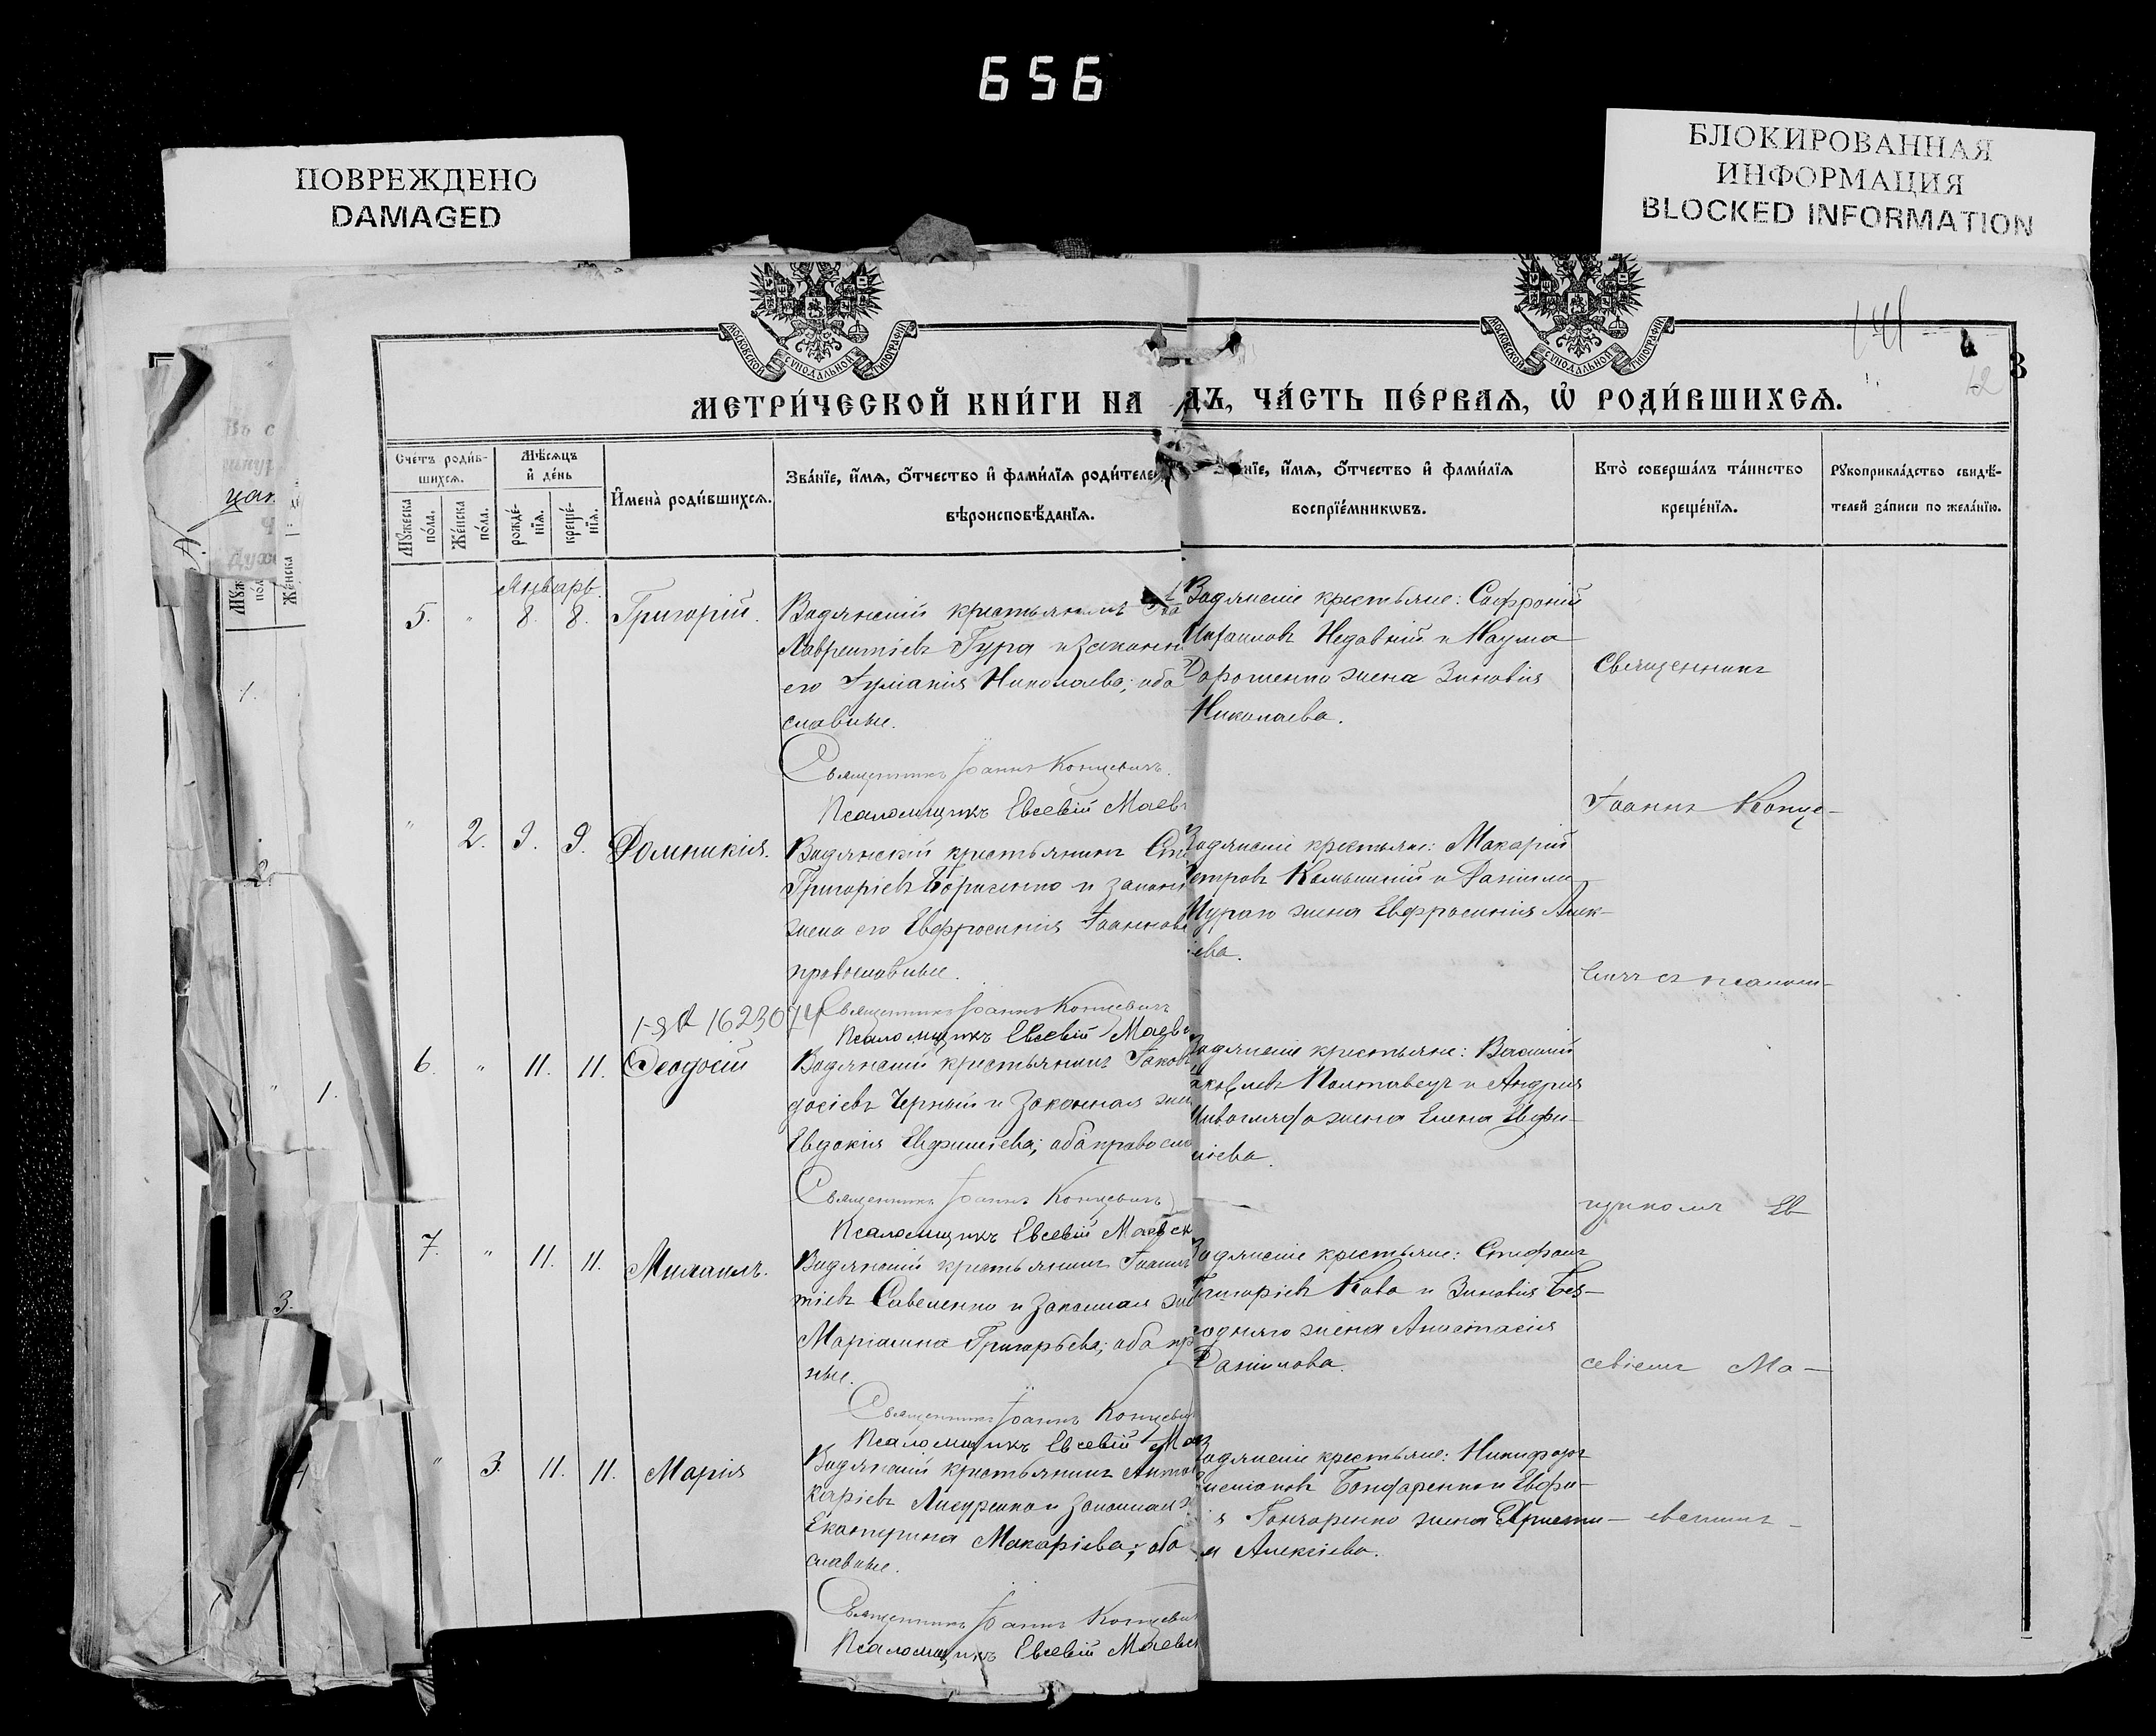 656
ПОВРЕЖДЕНО
DAMAGED
БЛОКИРОВАННАЯ
ИНФОРМАЦИЯ
BLOCKED INFORMATION
МОСКОВСКОЙ СУНОДАЛЬНОЙ ТИПОГРАФІИ
МОСКОВСКОЙ СУНОДАЛЬНОЙ ТИПОГРАФІИ
12
3
МЕТРИ́ЧЕСКОЙ КНИ́ГИ НА
ДЪ, ЧА́СТЬ ПЕ́РВАѦ, Ѡ҆ РОДИ́ВШИХСѦ.
Сче́тъ роди́в-
шихсѧ.
Мꙋ́жеска по́ла.
Же́нска по́ла.
Мѣ́сѧцъ и҆ де́нь
рожде́-нїѧ.
креще́-нїѧ.
И҆мена̀ роди́вшихсѧ.
Зва́нїе, и҆́мѧ, ѻ҆́тчество и҆ фами́лїѧ роди́теле
вѣроисповѣ́данїѧ.
нїе, и҆́мѧ, ѻ҆́тчество и҆ фами́лїѧ
воспрїе́мникѡвъ.
Кто̀ соверша́лъ та́инство
креще́нїѧ.
Рꙋкоприкла́дство свидѣ́-
телей за́писи по жела́нїю.
Январь.
5. " 8. 8. Григорій.
Водянскій крестьянинъ
Лаврентіевъ Гура и законн
его Гуліанія Николаева; оба
славные.
Священникъ Іоаннъ Концевичъ.
Псаломщикъ Евсевій Маев
Водянскіе крестьяне: Софроній
Недавній и Наума
Дорошенко жена Зиновія
Николаева.
Священникъ
" 2. 9. 9. Домникія.
Водянскій крестьянинъ
Григоріевъ Борисенко и законн
жена его Евфросинія Іоаннов
православные.
Священникъ Іоаннъ Концевичъ
Псаломщикъ Евсевій Маев
одянскіе крестьяне: Макарій
етровъ и Даніила
жена Евфросинія Алек-
іева.
Іоаннъ Конце-
вичъ съ псалом-
1623074
6. " 11. 11. Ѳеодосій
Водянскій крестьянинъ Іаков
досіевъ Черный и законная жен
Евдокія Евфиміева; оба правосла
Священникъ Іоаннъ Концевичъ
Псаломщикъ Евсевій Маевск
одянскіе крестьяне: Василій
аковлевъ Полтавецъ и Андрея
жена Елена Евфи-
міева.
щикомъ Ев
7. " 11. 11. Михаилъ.
Водянскій крестьянинъ Іоанн
тіевъ Савеленко и законная же
Маріанна Григорьева; оба пр
ные.
Священникъ Іоаннъ Концеви
Псаломщикъ Евсевій Мае
одянскіе крестьяне: Стефанъ
Григоріевъ Кова и Зиновія Без-
родняго жена Анастасія
Даніилова.
севіемъ Ма-
" 3. 11. 11. Марія
Водянскій крестьянинъ Анто
каріевъ Лисуренко и законная ж
Екатерина Макаріева; оба
славные.
Священникъ Іоаннъ Концеви
Псаломщикъ Евсевій Маевс
одянскіе крестьяне: Никифоръ
Бондаренко и Евфи-
я Гончаренко жена Христи-
а Алексіева.
евскимъ
1.
2.
" 1.
3.